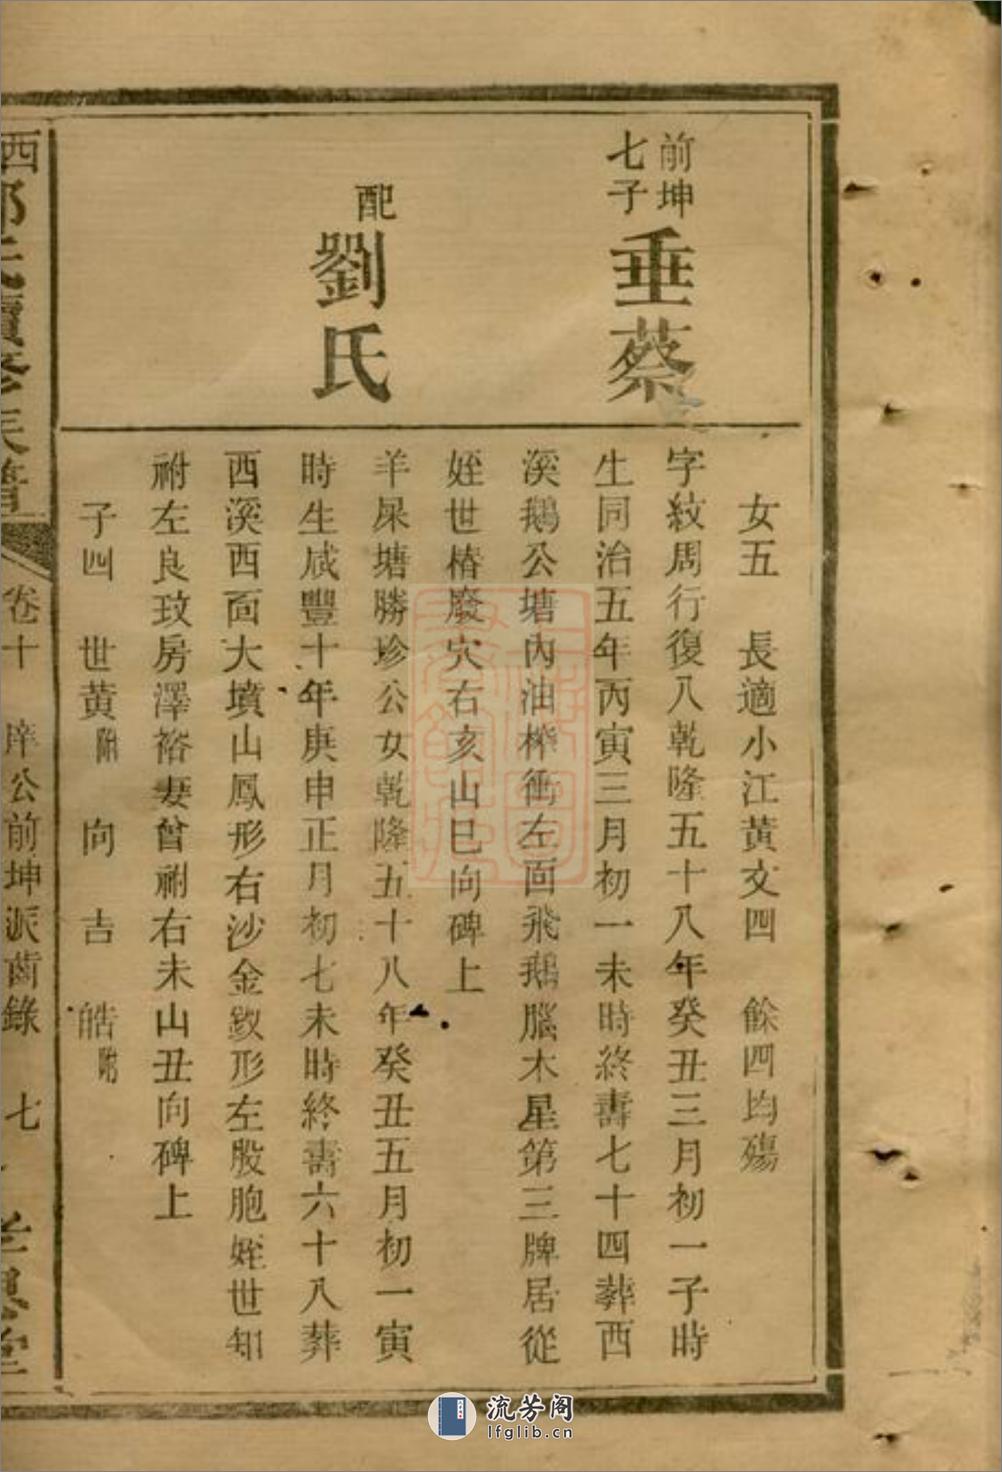 前坤
七子
垂蔡
配
劉氏
女五 長適小江黃文四 餘四均殤
字紋周行復八乾隆五十八年癸丑三月初一子時
生同治五年丙寅三月初一未時終壽七十四葬西
溪鵝公塘內油榨衝左面飛鵝腦木星第三牌居從
姪世椿廢穴右亥山巳向碑上
羊屎塘勝珍公女乾隆五十八年癸丑五月初一寅
時生咸豐十年庚申正月初七未時終壽六十八葬
西溪西面大墳山鳳形右沙金釵形左股胞姪世知
祔左良玟房澤裕妻曾祔右未山丑向碑上
子四 世黃附 向 吉 皓附
卷十 庠公前坤派齒錄 七
流芳阁
lfglib.cn